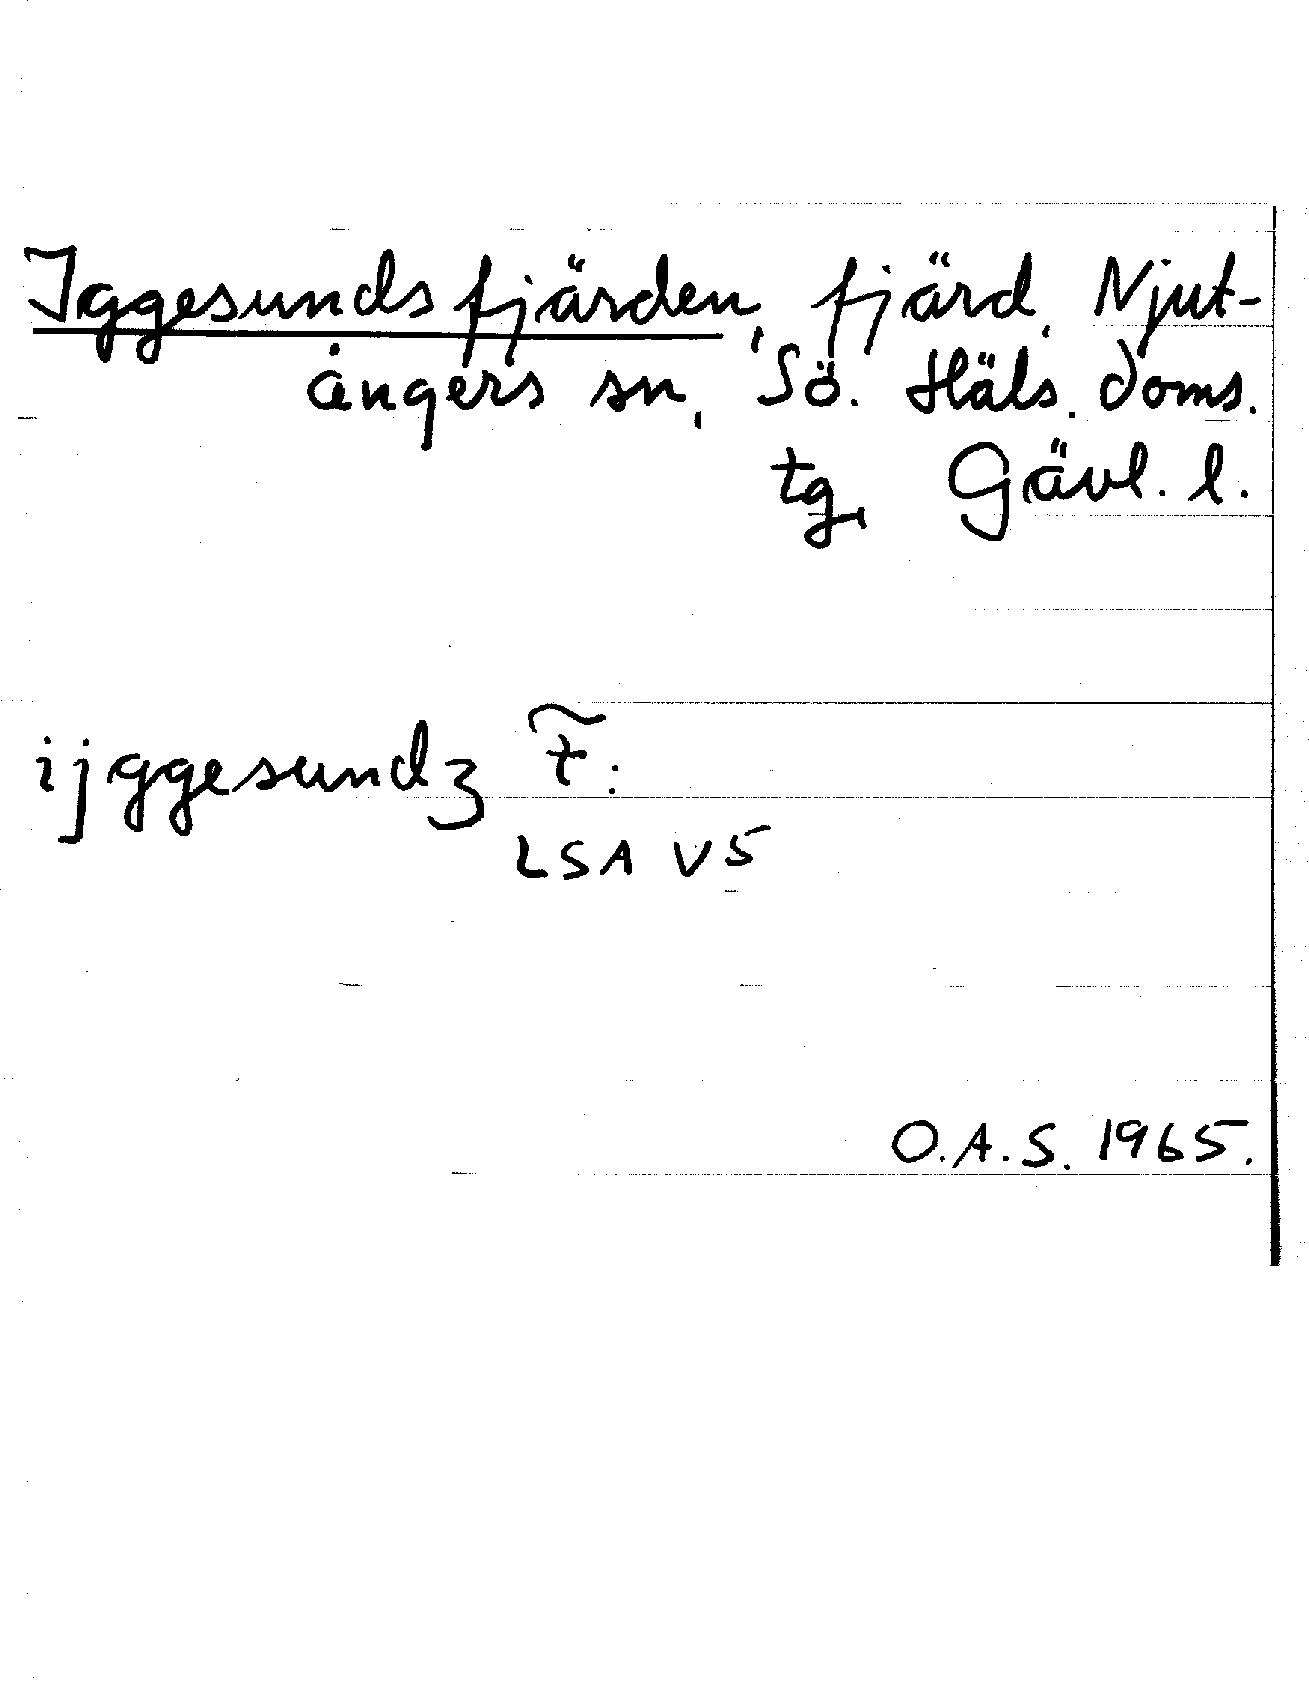 Iggesundsfjärden, fjärd, Njut-
ångers sn, Sö. Häls. doms.
tg, Gävl. l.
ijggesundz F:
LSA V5
O.A.S. 1965.